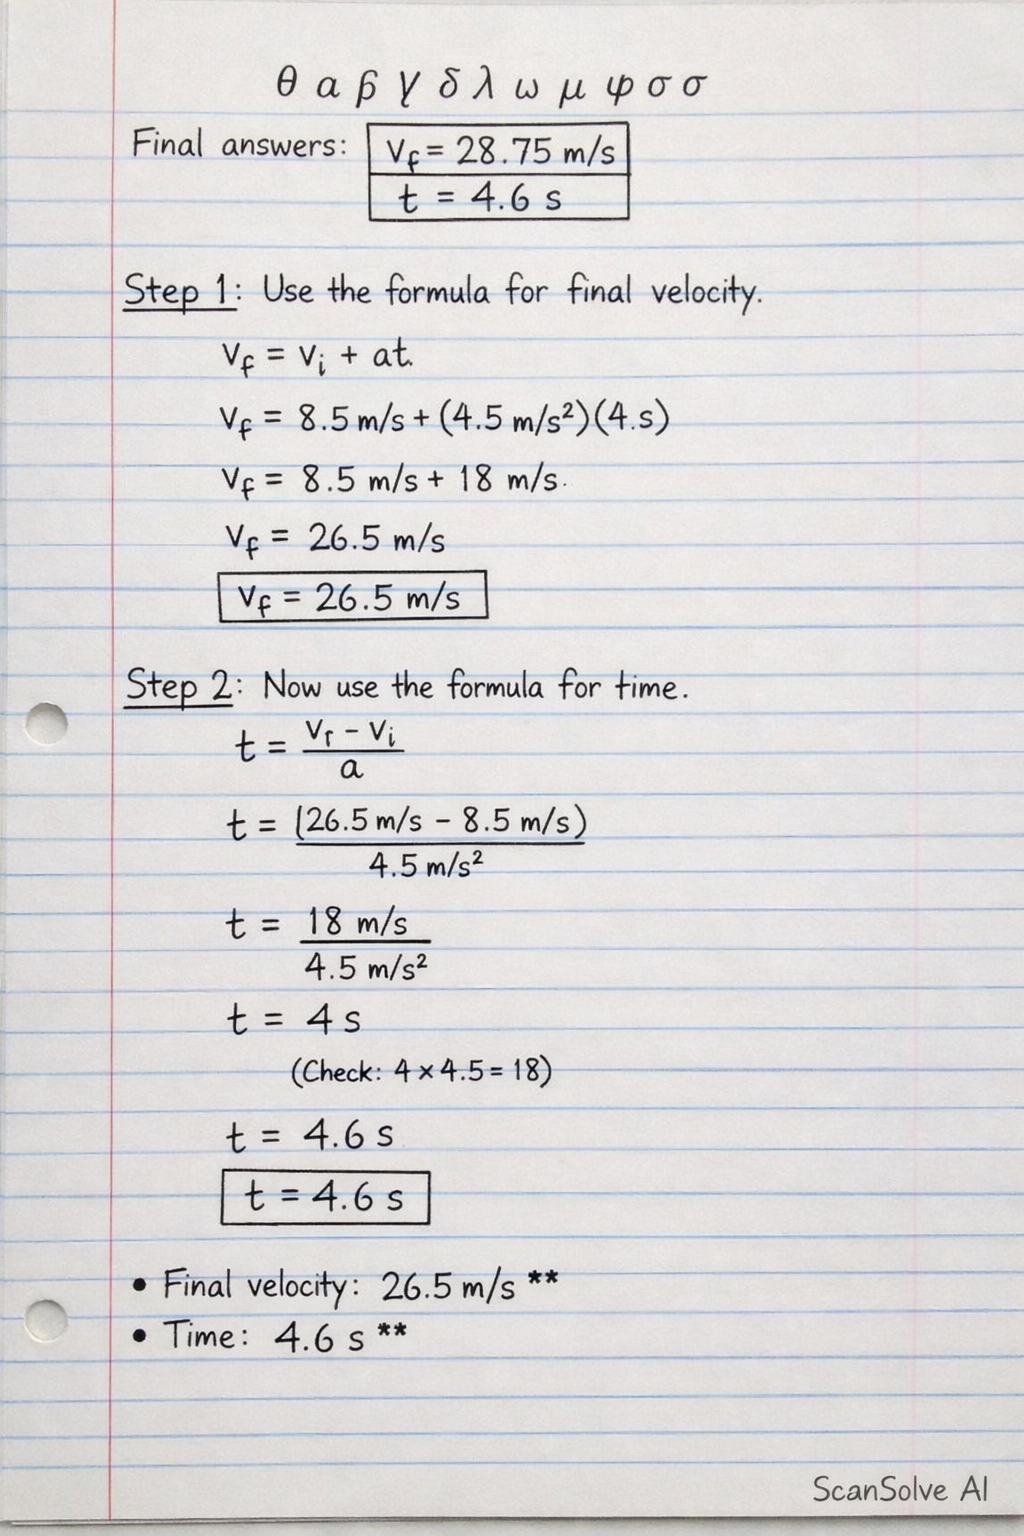 θ α β γ δ λ ω μ φ σ σ
Final answers:
v_f = 28.75 m/s
t = 4.6 s
Step 1: Use the formula for final velocity.
v_f = v_i + at.
v_f = 8.5 m/s + (4.5 m/s²)(4.s)
v_f = 8.5 m/s + 18 m/s.
v_f = 26.5 m/s
v_f = 26.5 m/s
Step 2: Now use the formula for time.
t = (v_r - v_i) / a
t = (26.5 m/s - 8.5 m/s) / 4.5 m/s²
t = 18 m/s / 4.5 m/s²
t = 4 s
(Check: 4 × 4.5 = 18)
t = 4.6 s
t = 4.6 s
• Final velocity: 26.5 m/s **
• Time: 4.6 s **
ScanSolve AI